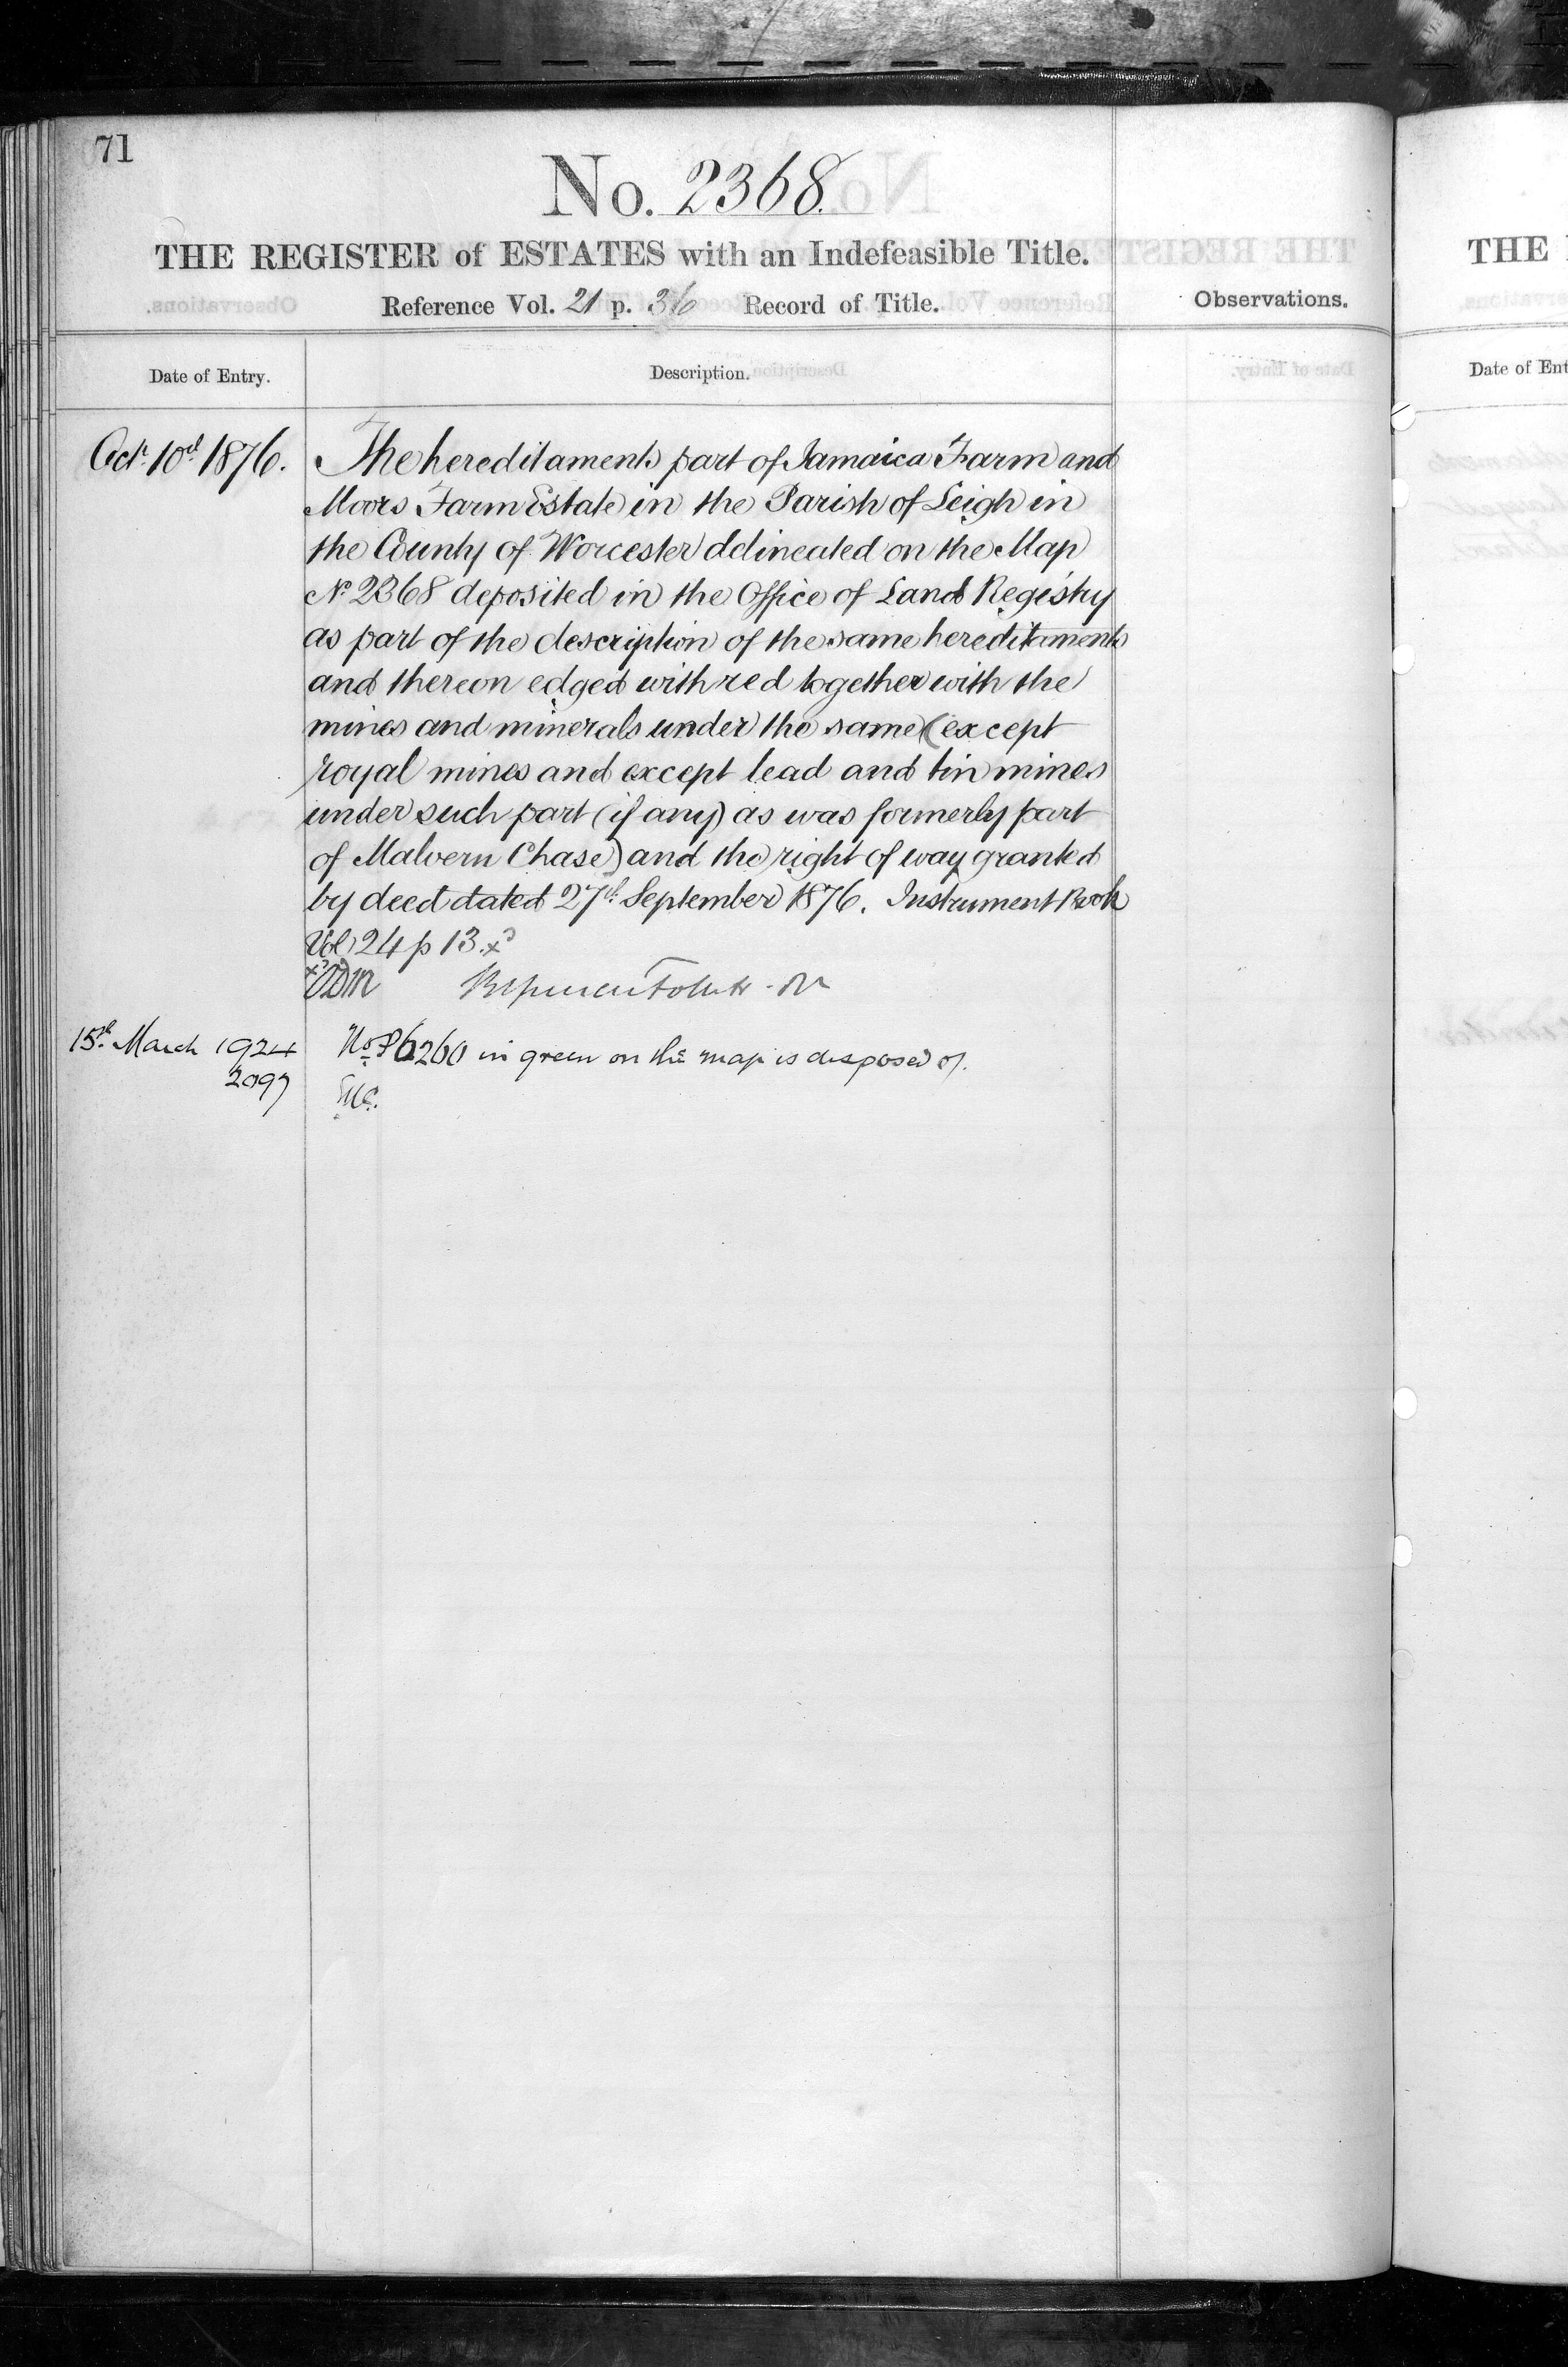 71
No. 2368.
THE REGISTER of ESTATES with an Indefeasible Title.
Reference Vol. 21 p. 36 Record of Title.
Observations.
Date of Entry.
Description.
Octr. 10th 1876.
The hereditaments part of Jamaica Farm and
Moors Farm Estate in the Parish of Leigh in
the County of Worcester delineated on the Map
No 2368 deposited in the Office of Land Registry
as part of the description of the same hereditaments
and thereon edged with red together with the
mines and minerals under the same (except
royal mines and except lead and tin mines
under such part (if any) as was formerly part
of Malvern Chase) and the right of way granted
by deed dated 27th September 1876. Instrument Book
Vol 24 p 13.
15th March 1924
2097
No P6260 in green on the map is disposed of.
THE
Date of Ent